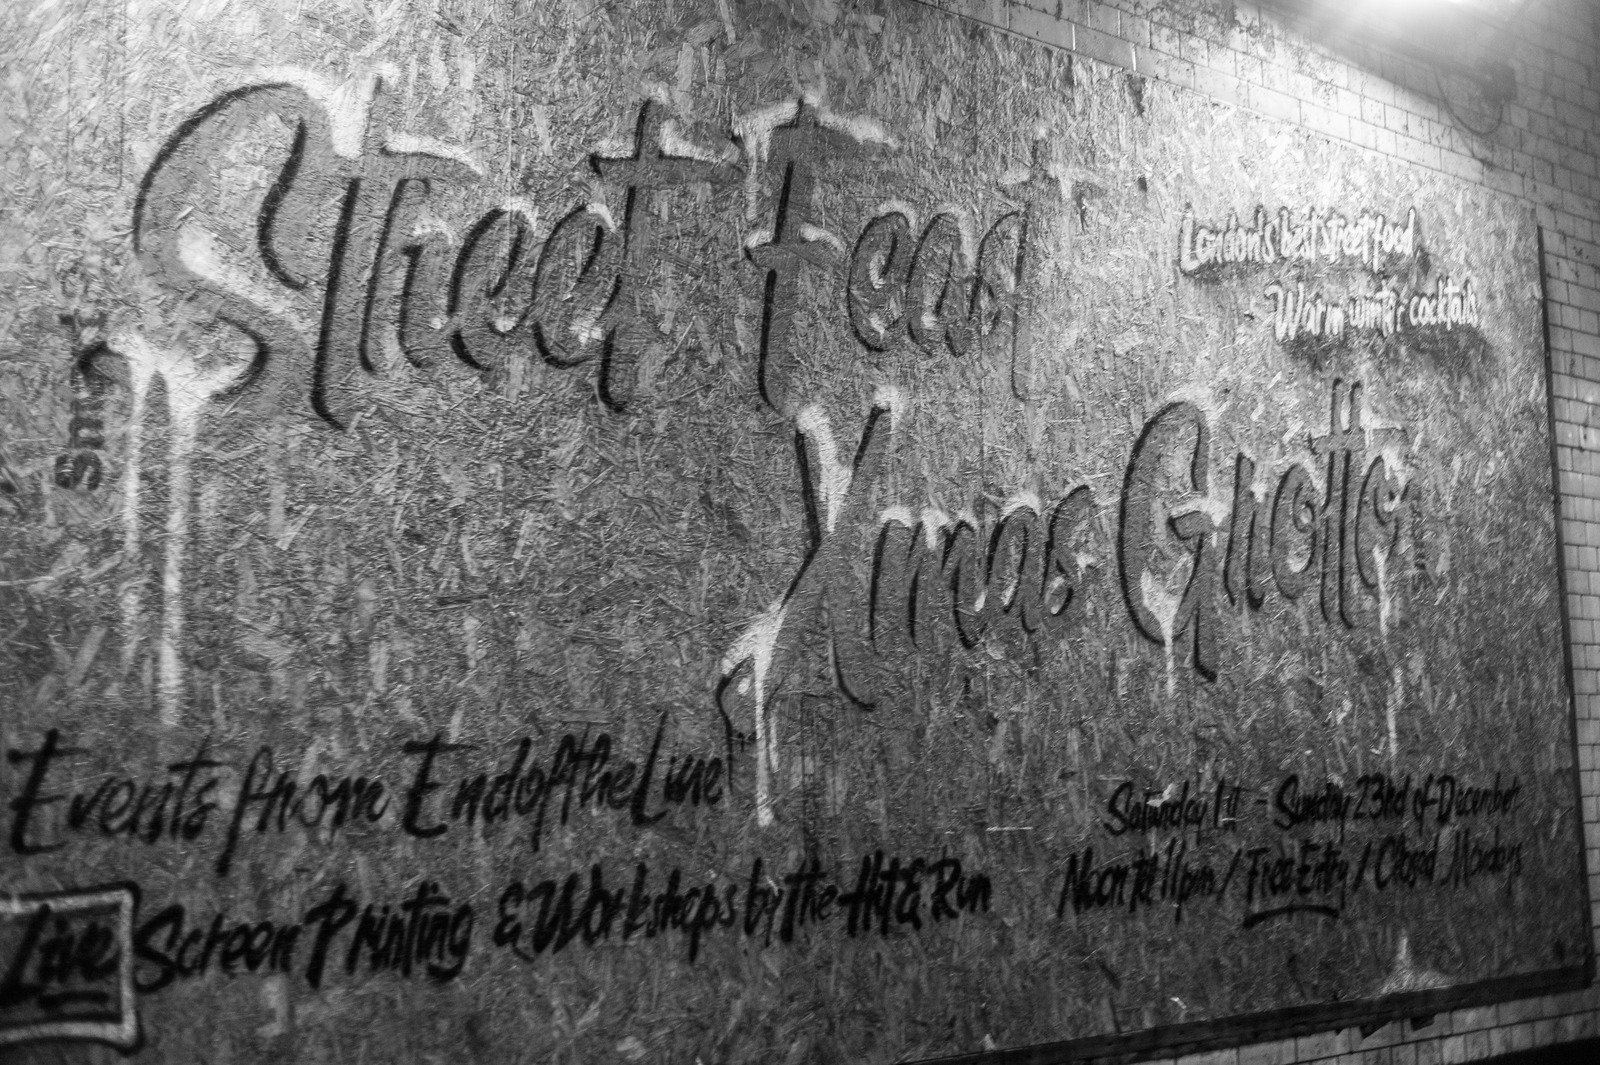 Street Feast
London's best street food
Warm winter cocktails
Xmas Grotto
Events from EndoftheLine
Live Screen Printing & Workshops by the Hit & Run
Saturday 1st - Sunday 23rd of December
Noon til 11pm / Free Entry / Closed Mondays